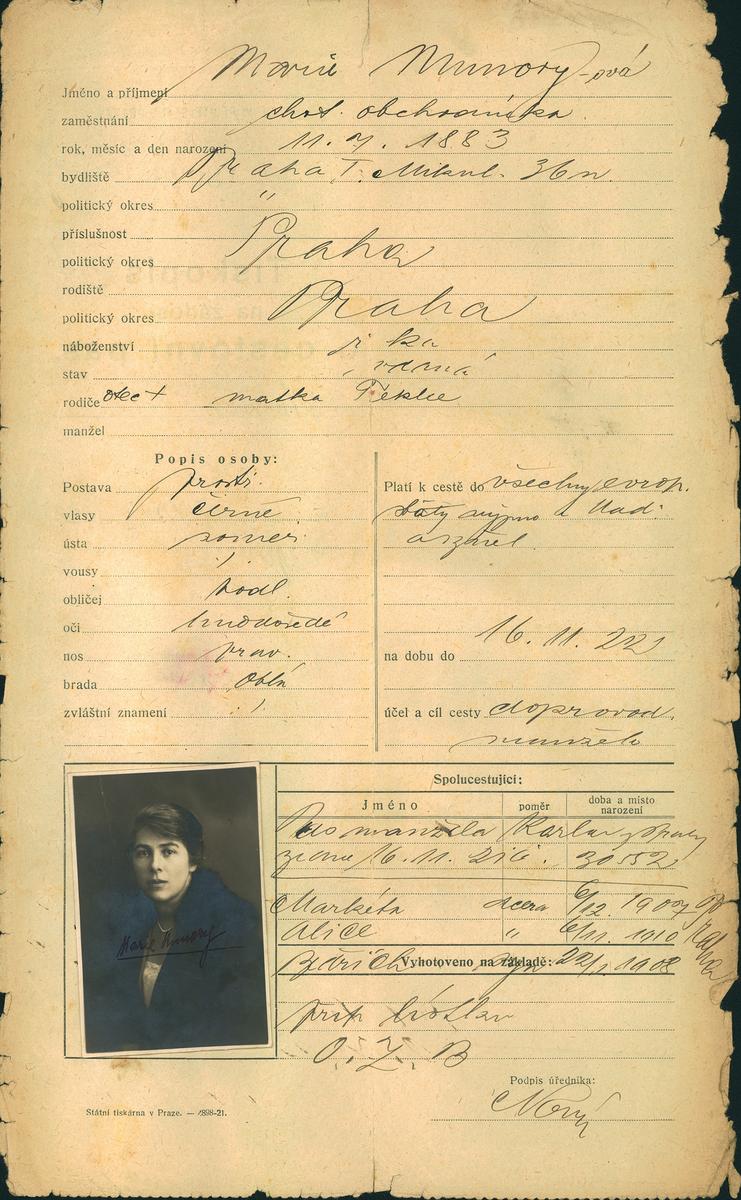 Jméno a příjmení Marie Munory-ová
zaměstnání chot. obchodníka
rok, měsíc a den narození 11. 7. 1883
bydliště Praha I. Mikul. 36n.
politický okres "
příslušnost
politický okres Praha
rodiště
politický okres Praha
náboženství
stav vdaná
rodiče otec + matka Teklie
manžel
Popis osoby:
Postava prostř.
vlasy černé
ústa souměr.
vousy /
obličej podl.
oči hnědošedé
nos prav.
brada oblá
zvláštní znamení /
Platí k cestě do všechny evrop.
státy mimo
na dobu do 16. 11. 22
účel a cíl cesty doprovod.
manžela
Marie Munory
Spolucestující:
Jméno poměr doba a místo narození
Pas manžela Karla z Prahy
ze dne 16. 11. 21 č. 30552
Markéta dcera 6/12. 1907
Alice " 6/11. 1910
Bedřich syn 22/1. 1908
Praha
Vyhotoveno na základě:
O. Z. B
Podpis úředníka:
Nový
Státní tiskárna v Praze. — 1898-21.